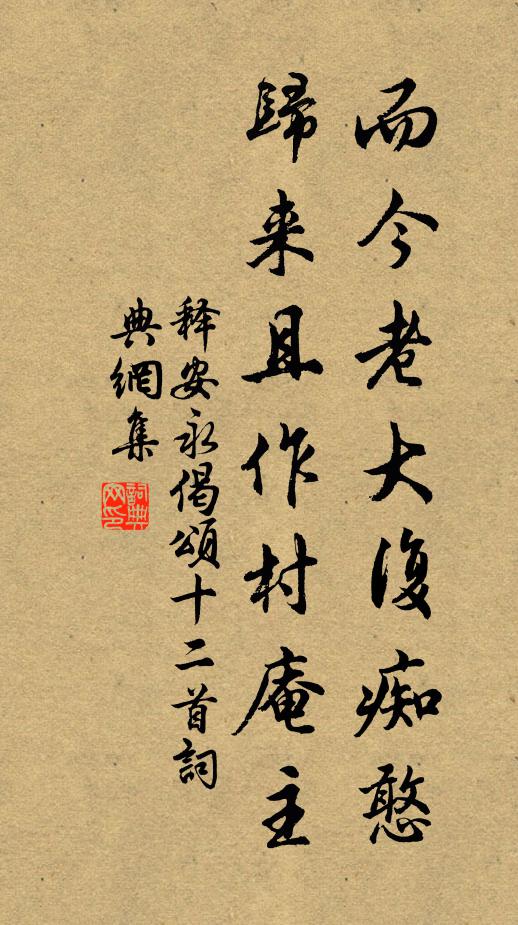 而今老大復痴憨
歸来且作村庵主
释安永偈頌十二首詞
典網集
詞典
网印